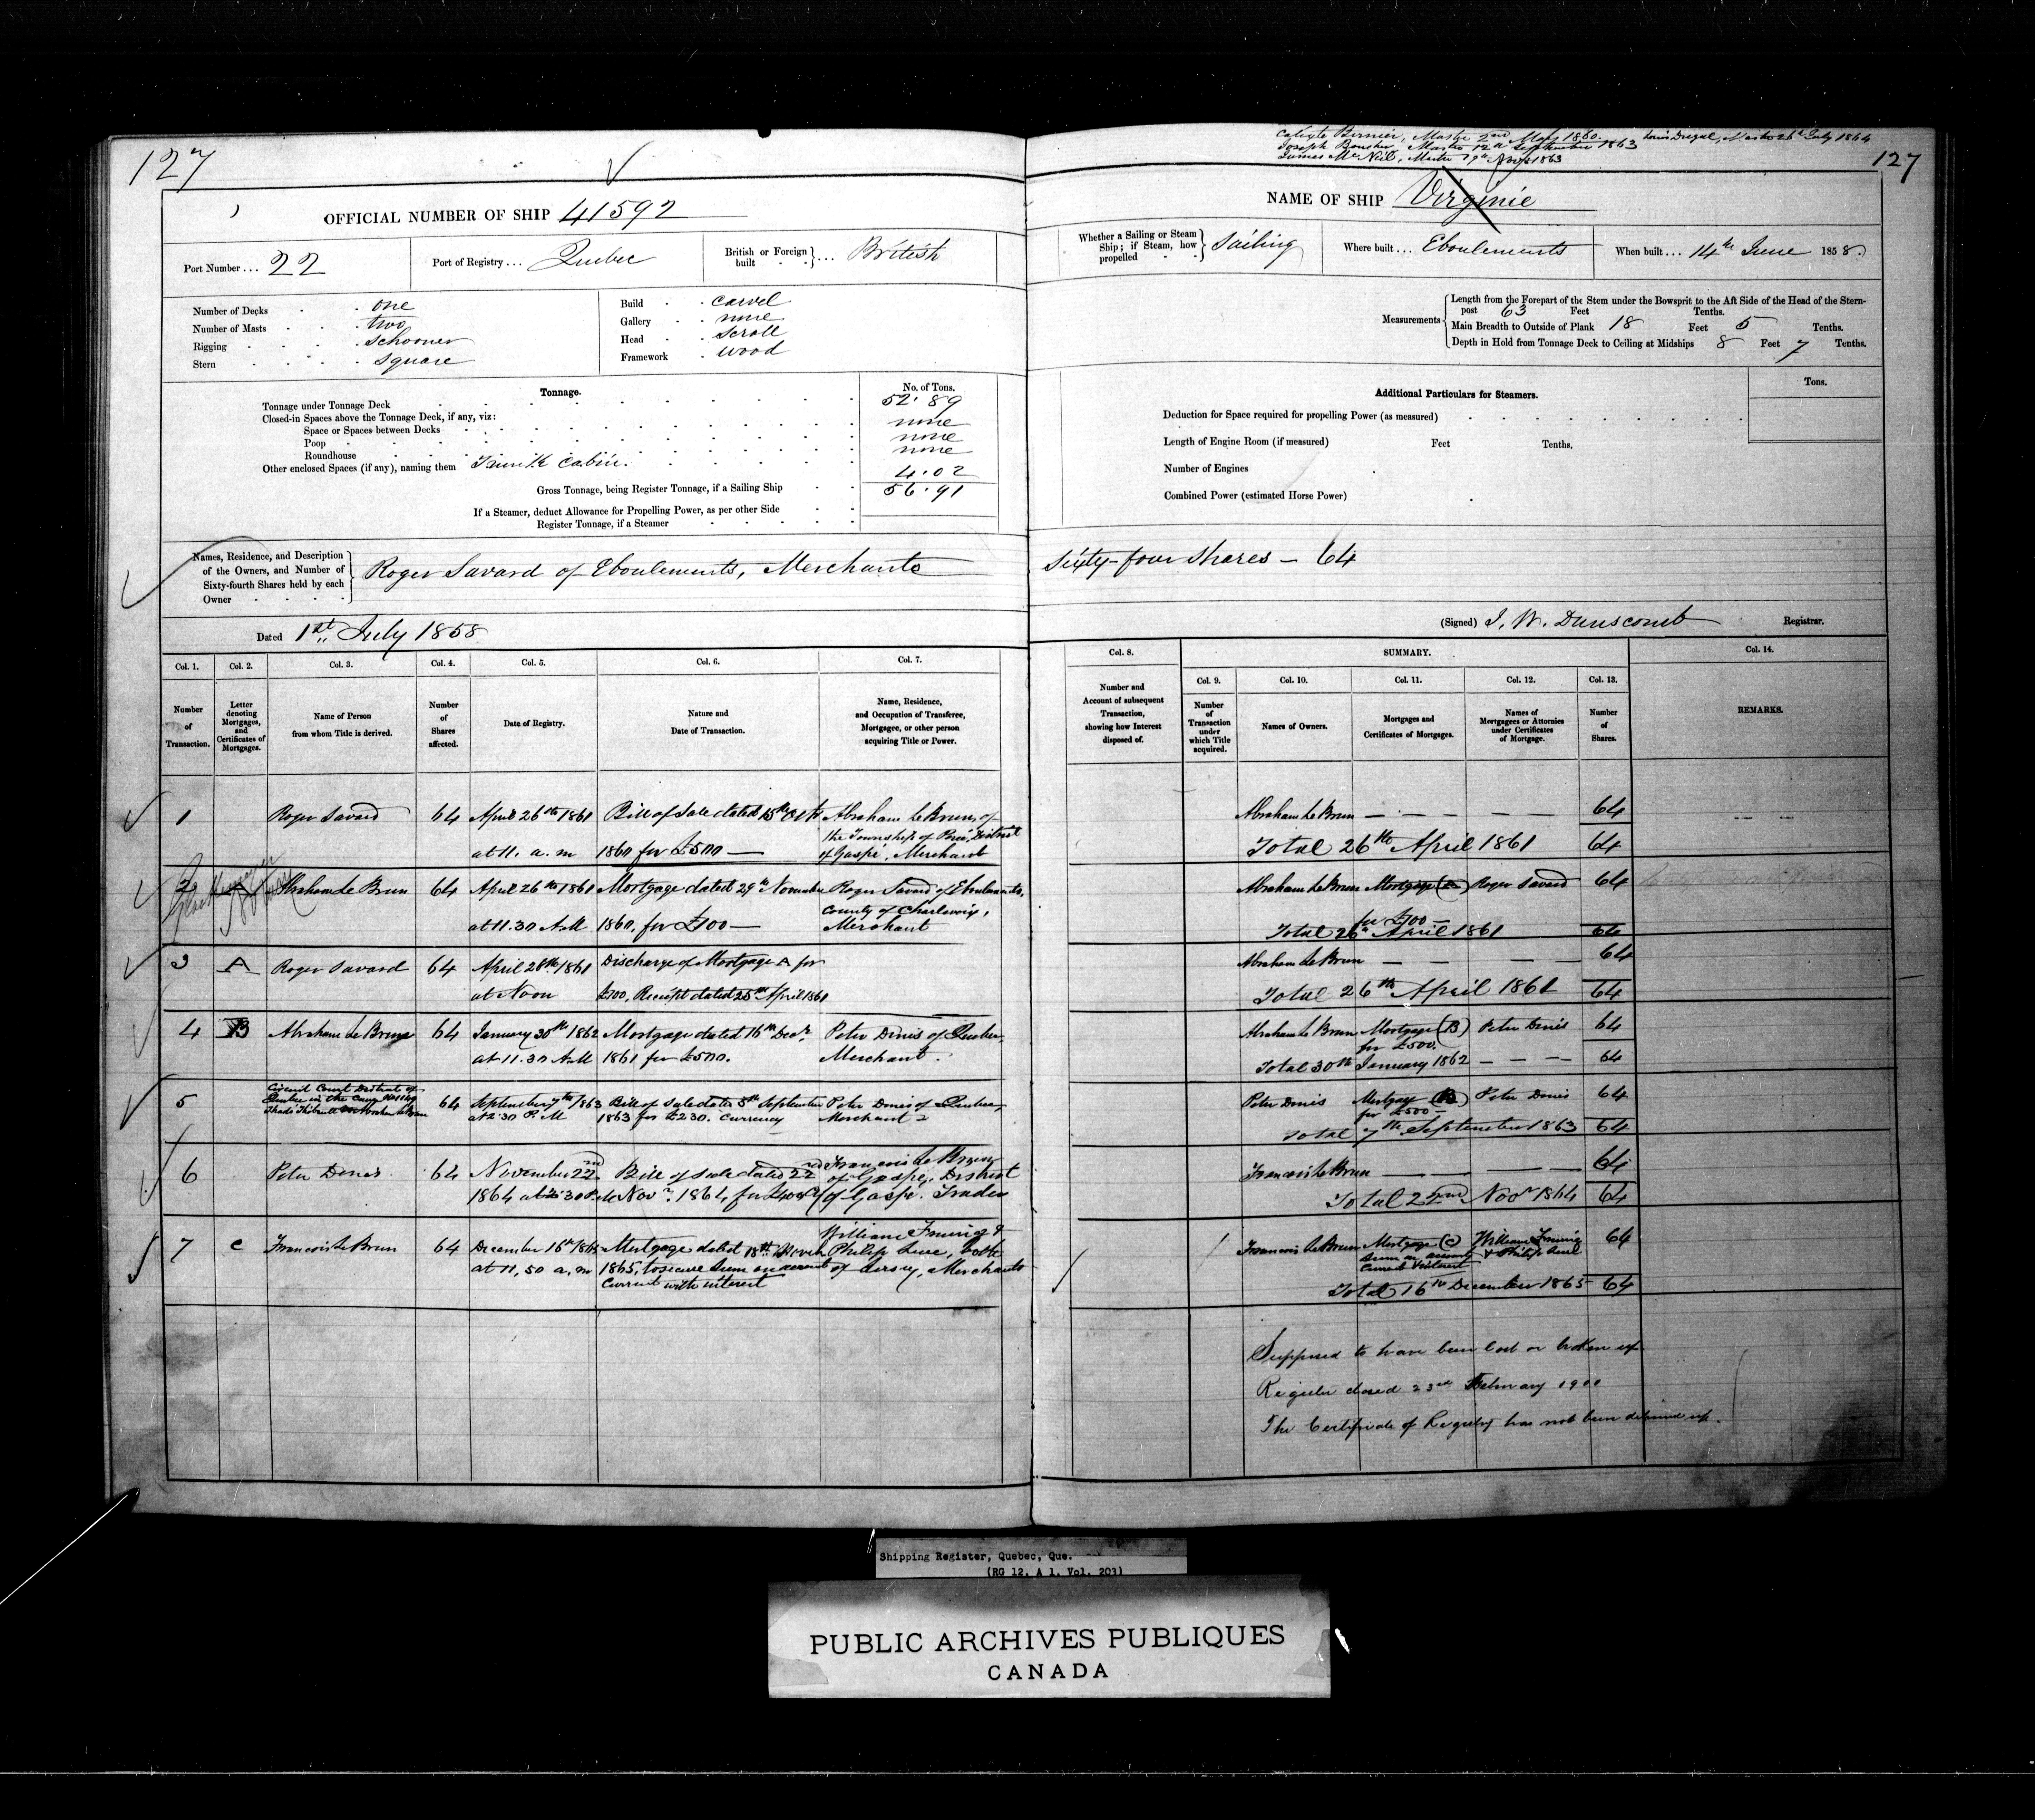 127
Calixte Bernier, Master 2nd May 1860. Louis Dugal, Master 26th July 1864
Joseph Boucher, Master 12th September 1863
James McNeil, Master 19th 1863
127
OFFICIAL NUMBER OF SHIP 41592
NAME OF SHIP Virginie
Port Number ... 22
Port of Registry ... Quebec
British or Foreign built ... British
Whether a Sailing or Steam Ship; if Steam, how propelled Sailing
Where built ... Eboulements
When built ... 14th June 1858.
Number of Decks one
Number of Masts two
Rigging Schooner
Stern Square
Build carvel
Gallery none
Head Scroll
Framework wood
Measurements
Length from the Forepart of the Stem under the Bowsprit to the Aft Side of the Head of the Stern-
post 63 Feet Tenths.
Main Breadth to Outside of Plank 18 Feet 5 Tenths.
Depth in Hold from Tonnage Deck to Ceiling at Midships 8 Feet 7 Tenths.
Tonnage. No. of Tons.
Tonnage under Tonnage Deck 52.89
Closed-in Spaces above the Tonnage Deck, if any, viz:
Space or Spaces between Decks none
Poop none
Roundhouse none
Other enclosed Spaces (if any), naming them cabin. 4.02
Gross Tonnage, being Register Tonnage, if a Sailing Ship 56.91
If a Steamer, deduct Allowance for Propelling Power, as per other Side
Register Tonnage, if a Steamer
Additional Particulars for Steamers. Tons.
Deduction for Space required for propelling Power (as measured)
Length of Engine Room (if measured) Feet Tenths.
Number of Engines
Combined Power (estimated Horse Power)
Names, Residence, and Description
of the Owners, and Number of
Sixty-fourth Shares held by each
Owner
Roger Savard of Eboulements, Merchant Sixty-four shares - 64
Dated 1st July 1858
(Signed) J. W. Dunscomb Registrar.
Col. 1. Number of Transaction.
Col. 2. Letter denoting Mortgages, and Certificates of Mortgages.
Col. 3. Name of Person from whom Title is derived.
Col. 4. Number of Shares affected.
Col. 5. Date of Registry.
Col. 6. Nature and Date of Transaction.
Col. 7. Name, Residence, and Occupation of Transferee, Mortgagee, or other person acquiring Title or Power.
Col. 8. Number and Account of subsequent Transaction, showing how Interest disposed of.
SUMMARY.
Col. 9. Number of Transaction under which Title acquired.
Col. 10. Names of Owners.
Col. 11. Mortgages and Certificates of Mortgages.
Col. 12. Names of Mortgagees or Attornies under Certificates of Mortgage.
Col. 13. Number of Shares.
Col. 14. REMARKS.
1 Roger Savard 64 April 26th 1861 Bill of Sale dated 15th Octr Abraham Le Brun, of
the Township of District
at 11. a.m 1860 for £500 — of Gaspé, Merchant
Abraham Le Brun — — — — 64
Total 26th April 1861 64
2 A Abraham Le Brun 64 April 26th 1861 Mortgage dated 29th November Roger Savard of Eboulements,
County of Charlevoix,
at 11.30 A.M 1860, for £100 — Merchant
Abraham Le Brun Mortgage (A) Roger Savard 64
for £100 —
Total 26th April 1861 64
3 A Roger Savard 64 April 28th 1861 Discharge of Mortgage A for
at Noon £100, Receipt dated 25th April 1861
Abraham Le Brun — — — — 64
Total 26th April 1861 64
4 B Abraham Le Brun 64 January 30th 1862 Mortgage dated 16th Decr. Peter Dinis of Quebec,
at 11.30 A.M 1861 for £500. Merchant.
Abraham Le Brun Mortgage (B) Peter Dinis 64
for £500.
Total 30th January 1862 — — — 64
5 Circuit Court District of
Quebec in the Cause
64 September 7th 1863 Bill of Sale dated 5th September Peter Dinis of Quebec,
at 2.30 P.M 1863 for £230. Currency Merchant
Peter Dinis Mortgage (B) Peter Dinis 64
for £500 —
Total 7th September 1863 64
6 Peter Dinis 64 November 22nd Bill of Sale dated 22nd Francois Le Brun
of Gaspé, District
1864 at 2.30 P.M. Novr. 1864, for of Gaspé. Trader
Francois Le Brun — — — — 64
Total 22nd Novr 1864 64
7 C Francois Le Brun 64 December 16th 1865 Mortgage dated 18th William Fruing &
Philip both
at 11,50 a.m 1865, to secure Sum on account of Jersey, Merchants
Current with interest
Francois Le Brun Mortgage (C) William Fruing 64
Sum on account & Philip
Current & Interest
Total 16th December 1865 64
Supposed to have been lost or broken up
Register closed 23rd February 1900
The Certificate of Registry has not been delivered up.
Shipping Register, Quebec, Que.
(RG 12, A 1, Vol. 203)
PUBLIC ARCHIVES PUBLIQUES
CANADA